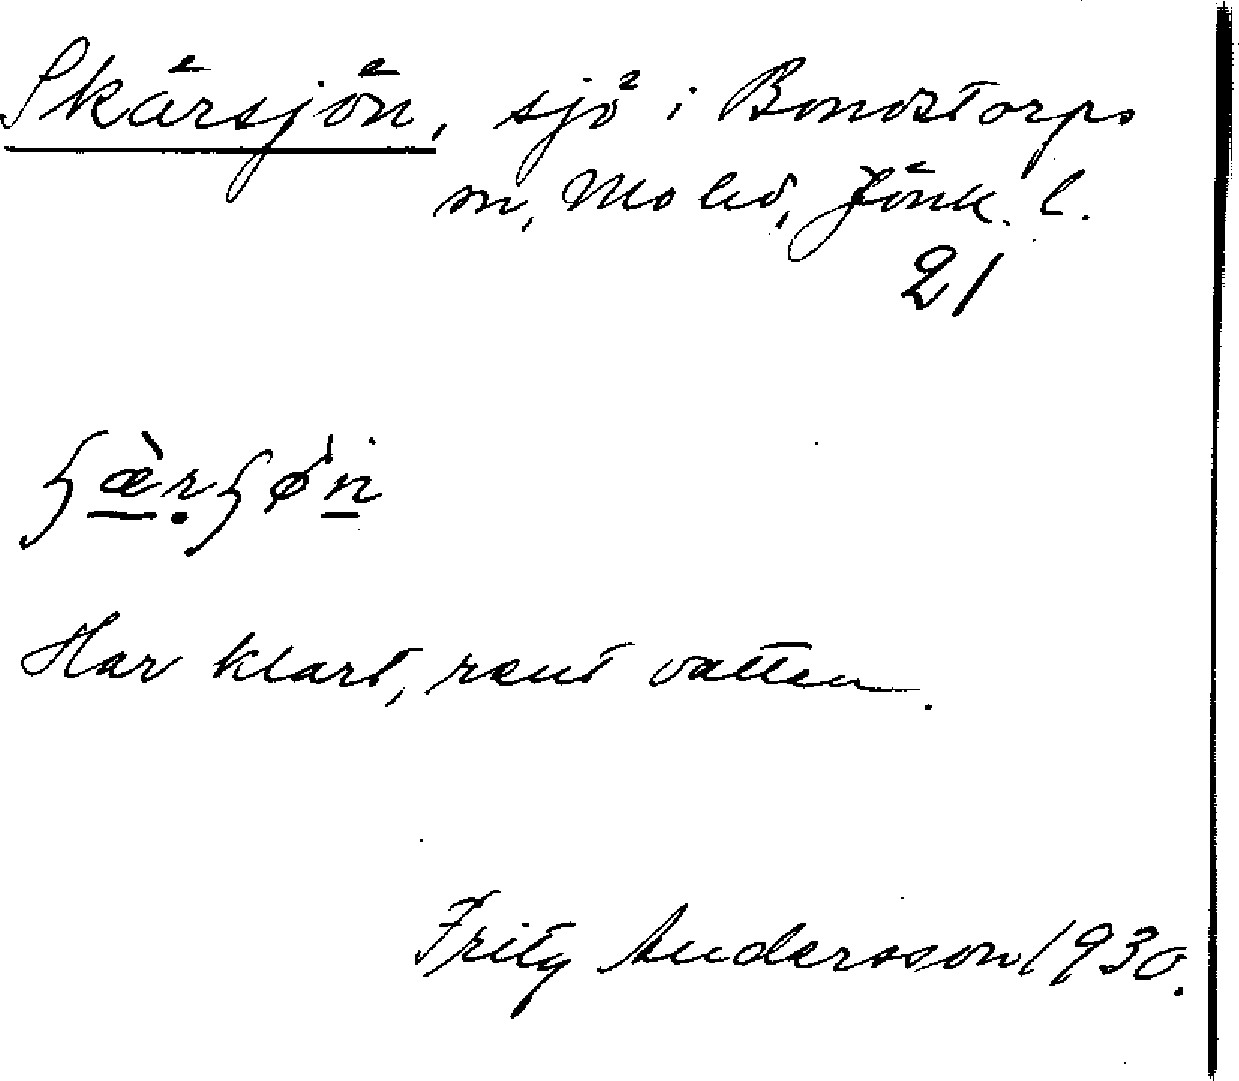 Skärsjön, sjö i Bondstorps
sn, Mo hd, Jönk. l.
21
ʃæ̀rʃøn
Har klart, rent vatten.
Fritz Andersson 1930.